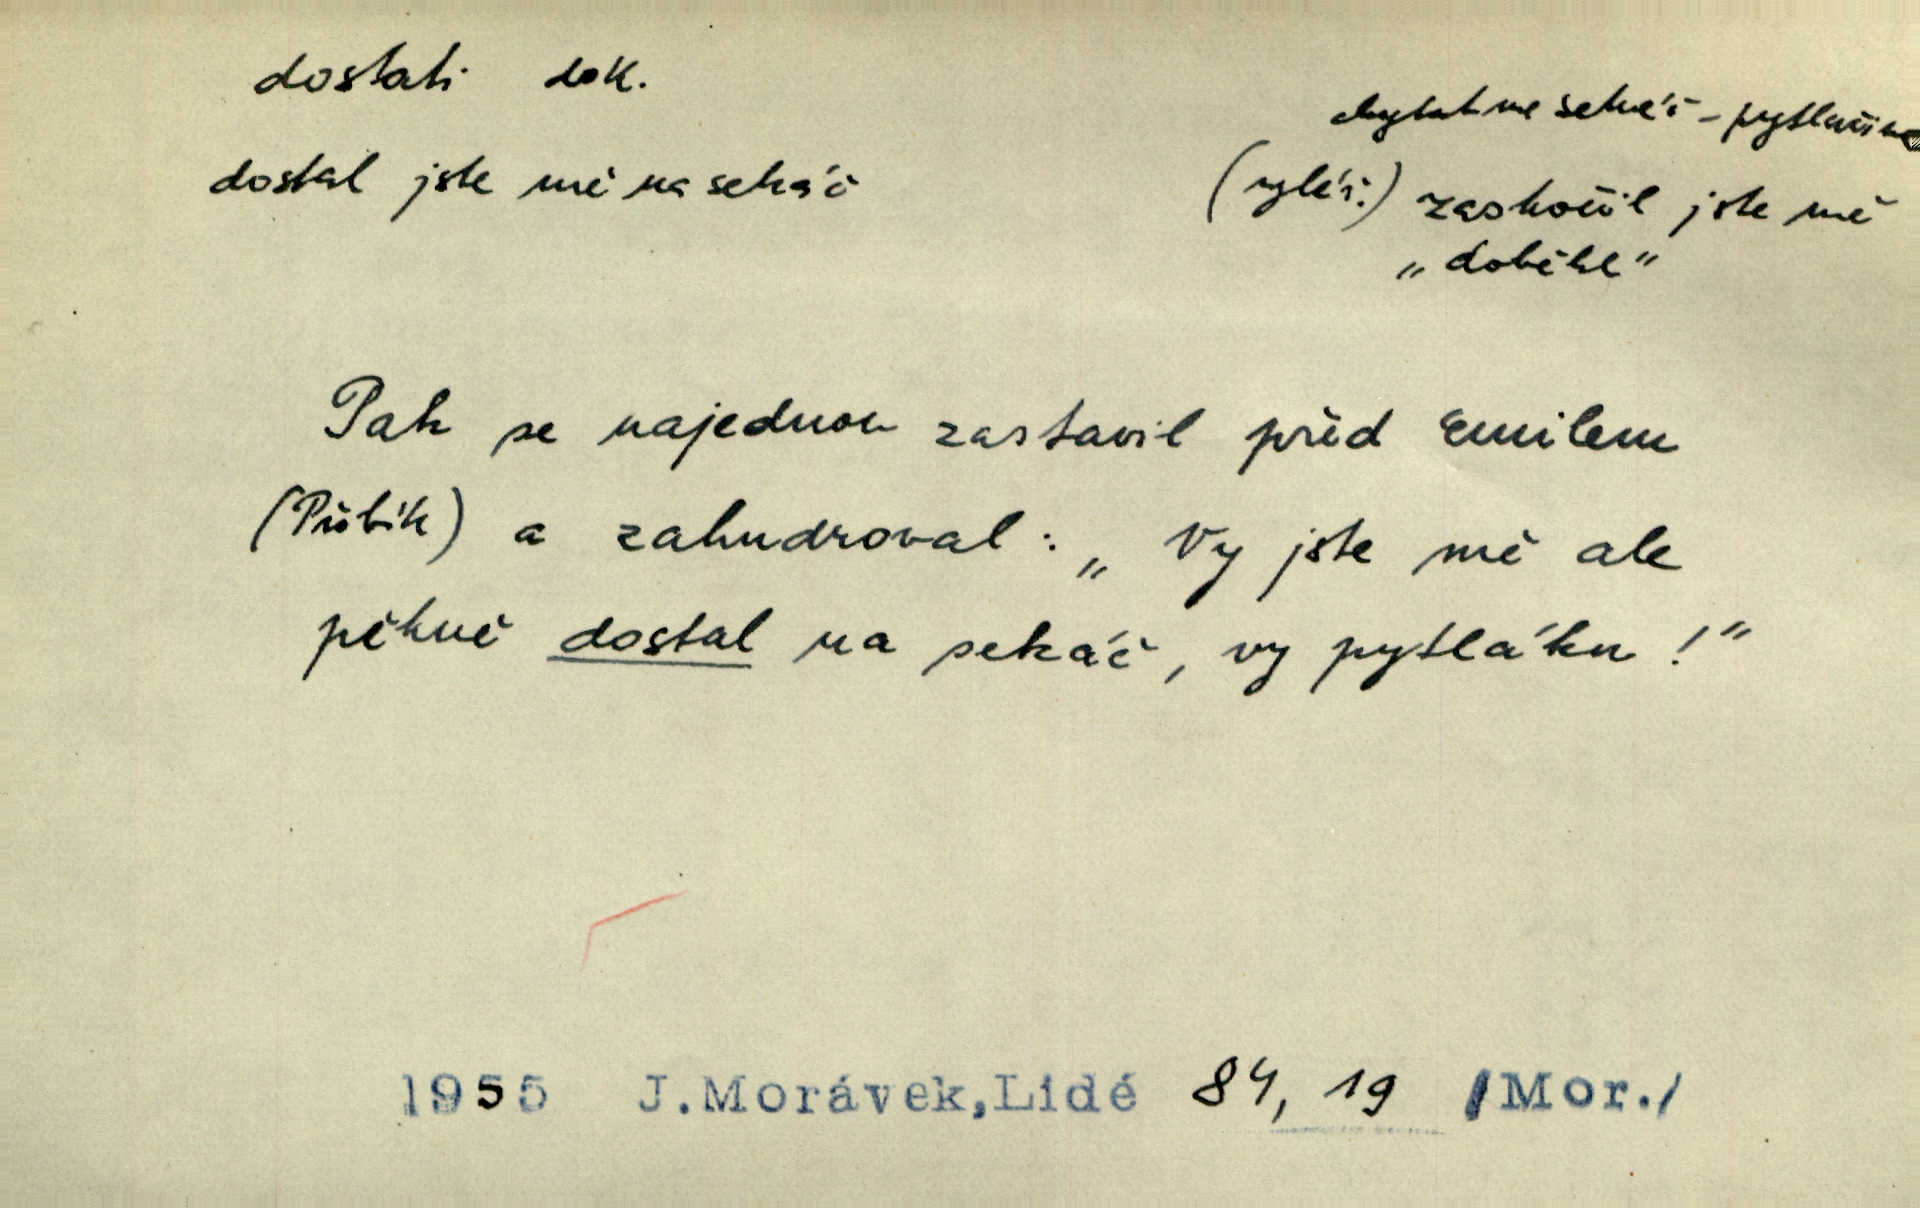 dostati dok.
chytat na sekáč -
dostal jste mě na sekáč
zaskočil jste mě
„doběhl"
Pak se najednou zastavil před Emilem
(Přibík) a zahudroval: „Vy jste mě ale
pěkně dostal na sekáč, vy pytláku!"
1955 J.Morávek,Lidé 84, 19 /Mor./